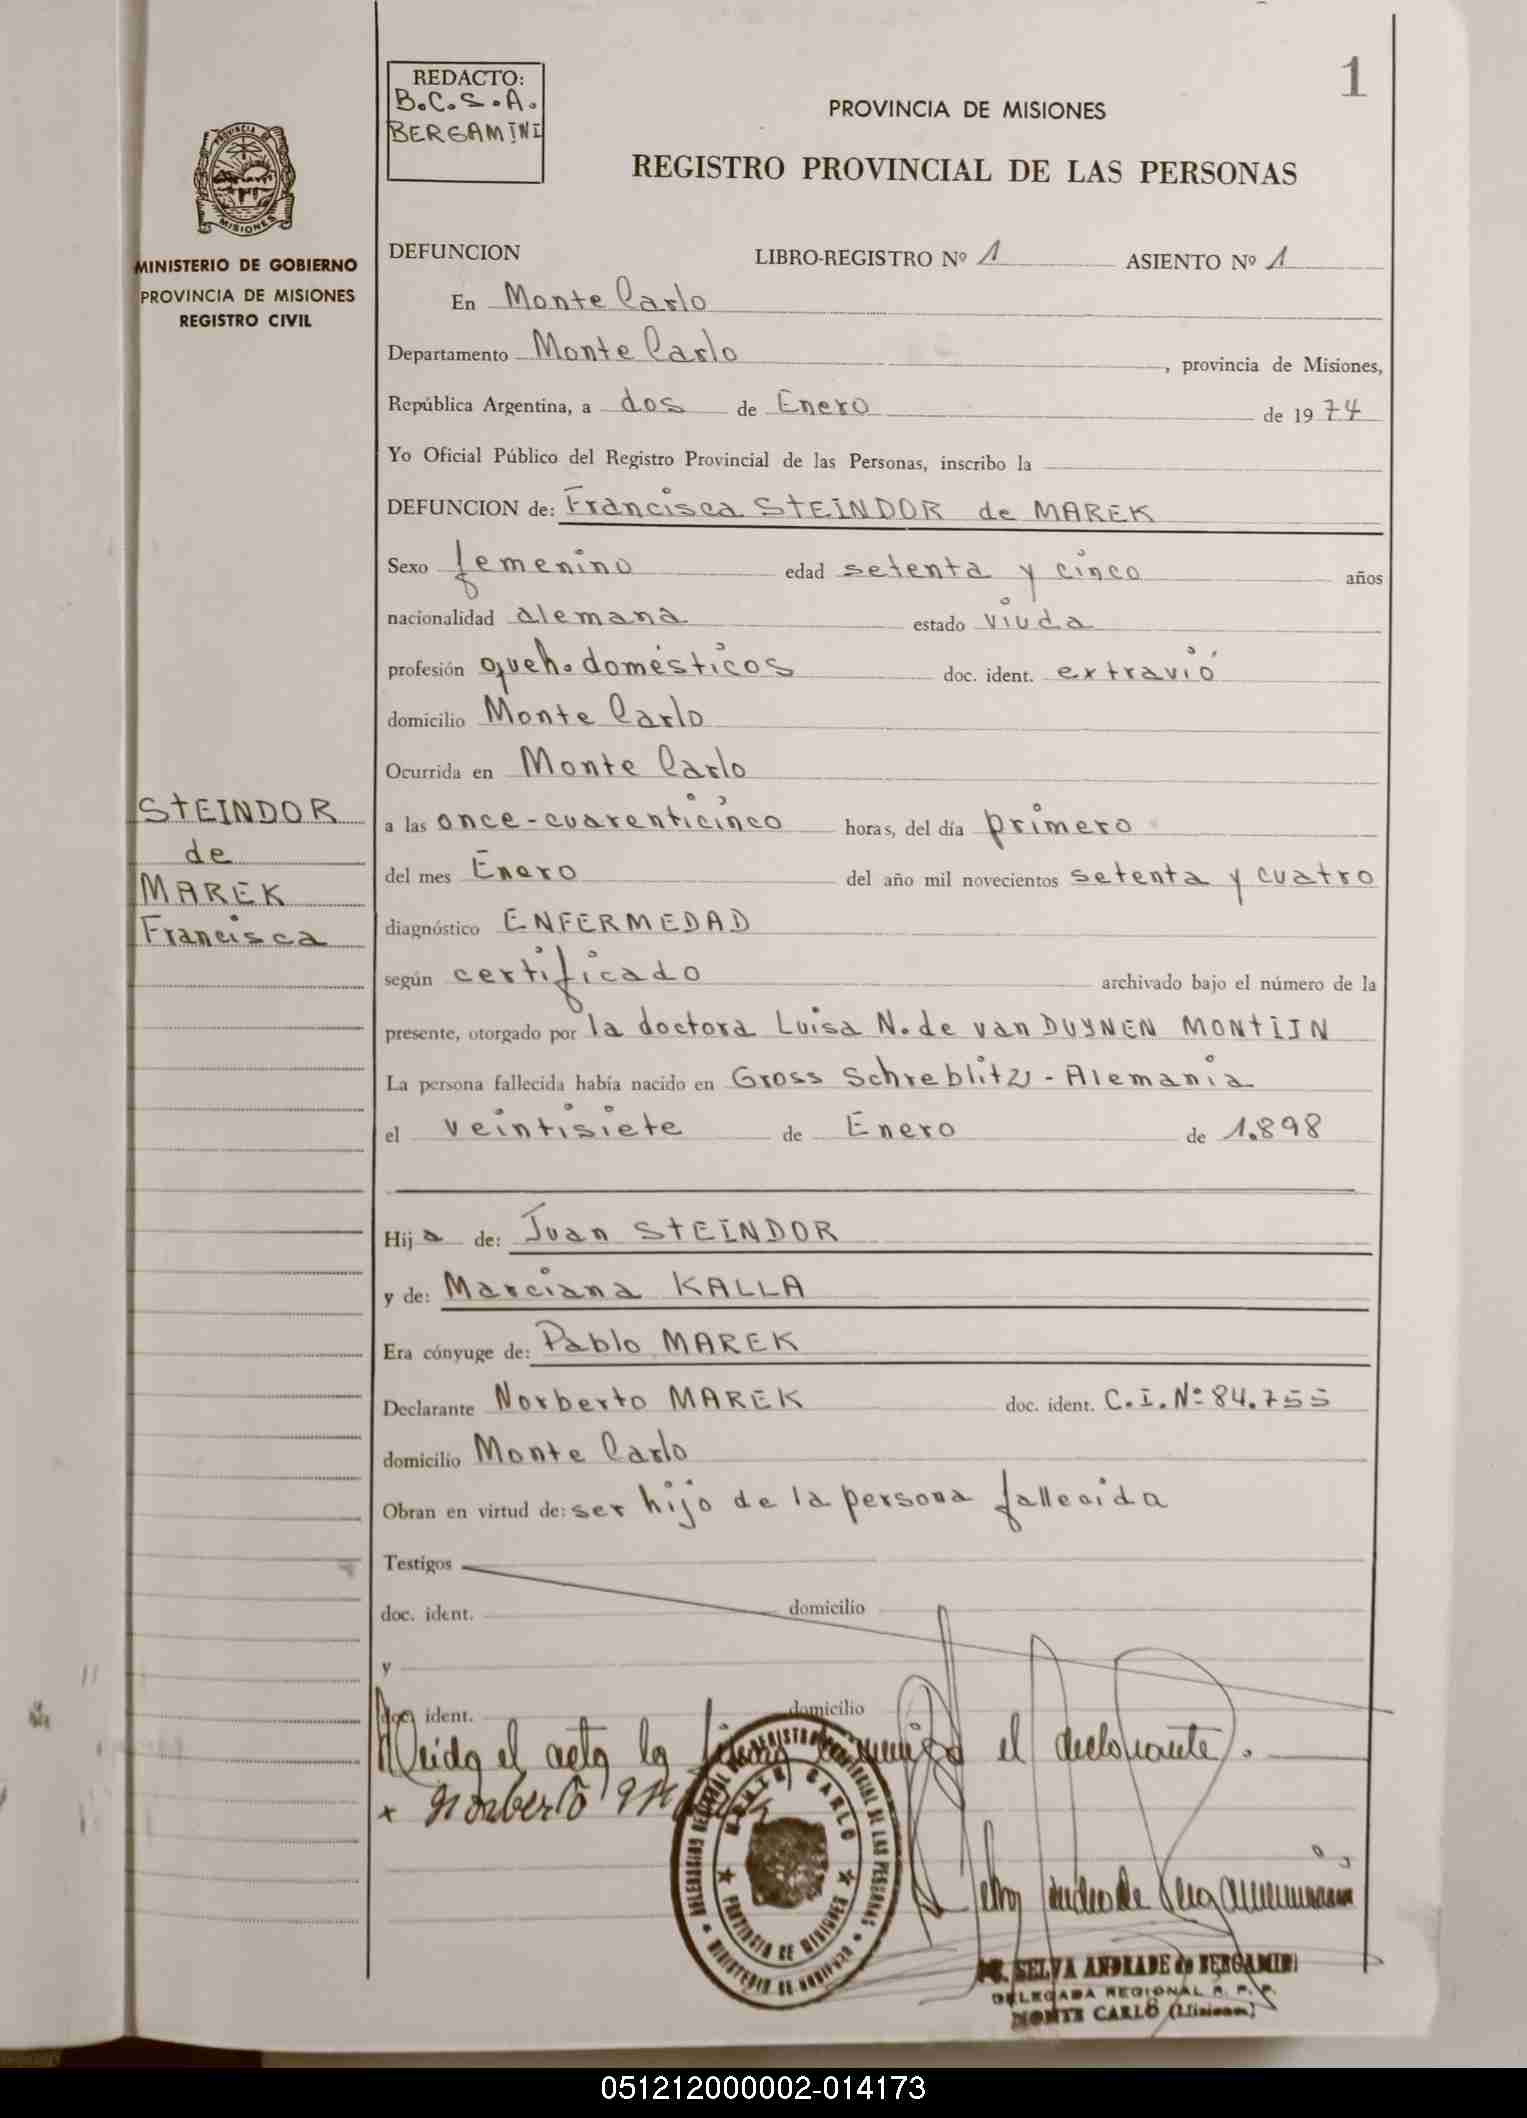 1
REDACTO:
B.C.S.A.
BERGAMINI
PROVINCIA DE MISIONES
REGISTRO PROVINCIAL DE LAS PERSONAS
PROVINCIA DE
MISIONES
MINISTERIO DE GOBIERNO
PROVINCIA DE MISIONES
REGISTRO CIVIL
DEFUNCION LIBRO-REGISTRO Nº 1 ASIENTO Nº 1
En Monte Carlo
Departamento Monte Carlo, provincia de Misiones,
República Argentina, a dos de Enero de 1974
Yo Oficial Público del Registro Provincial de las Personas, inscribo la
DEFUNCION de: Francisca STEINDOR de MAREK
Sexo femenino edad setenta y cinco años
nacionalidad alemana estado viuda
profesión queh. domésticos doc. ident. extravió
domicilio Monte Carlo
Ocurrida en Monte Carlo
a las once-cuarenticinco horas, del día primero
del mes Enero del año mil novecientos setenta y cuatro
diagnóstico ENFERMEDAD
según certificado archivado bajo el número de la
presente, otorgado por la doctora Luisa N. de van DUYNEN MONTIJN
La persona fallecida había nacido en Gross Schreblitz - Alemania
el veintisiete de Enero de 1.898
STEINDOR
de
MAREK
Francisca
Hija de: Juan STEINDOR
y de: Marciana KALLA
Era cónyuge de: Pablo MAREK
Declarante Norberto MAREK doc. ident. C.I. Nº 84.755
domicilio Monte Carlo
Obran en virtud de: ser hijo de la persona fallecida
Testigos
doc. ident. domicilio
y
doc. ident. domicilio
Leída el acta la firma conmigo el declarante.
x Norberto
DELEGACION REGIONAL DEL REGISTRO PROVINCIAL DE LAS PERSONAS
MONTE CARLO
PROVINCIA DE MISIONES
MINISTERIO DE GOBIERNO
SELVA ANDRADE de BERGAMINI
DELEGADA REGIONAL R. P. P.
MONTE CARLO (Misiones)
051212000002-014173